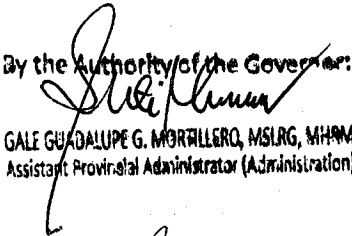 By the Authority of the Governor:
GALE GUADALUPE G. MORTILLERO, MSLRG, MHRM
Assistant Provincial Administrator (Administration)